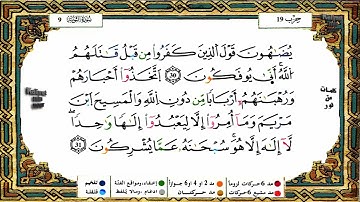 9 سورة التوبة حزب 19
يُضَٰهُِٔونَ قَوْلَ ٱلَّذِينَ كَفَرُوا۟ مِن قَبْلُ ۚ قَٰتَلَهُمُ
ٱللَّهُ ۚ أَنَّىٰ يُؤْفَكُونَ 30 ٱتَّخَذُوٓا۟ أَحْبَارَهُمْ
وَرُهْبَٰنَهُمْ أَرْبَابًا مِّن دُونِ ٱللَّهِ وَٱلْمَسِيحَ ٱبْنَ
مَرْيَمَ وَمَآ أُمِرُوٓا۟ إِلَّا لِيَعْبُدُوٓا۟ إِلَٰهًا وَٰحِدًا ۖ
لَّآ إِلَٰهَ إِلَّا هُوَ ۚ سُبْحَٰنَهُۥ عَمَّا يُشْرِكُونَ 31
كلمات
من
نور
مد 6 حركات لزوما مد 2 أو 4 أو 6 جوازا إخفاء، ومواقع الغنة تفخيم
مد مشبع 6 حركات مد حركتان إدغام، وما لا يلفظ قلقلة